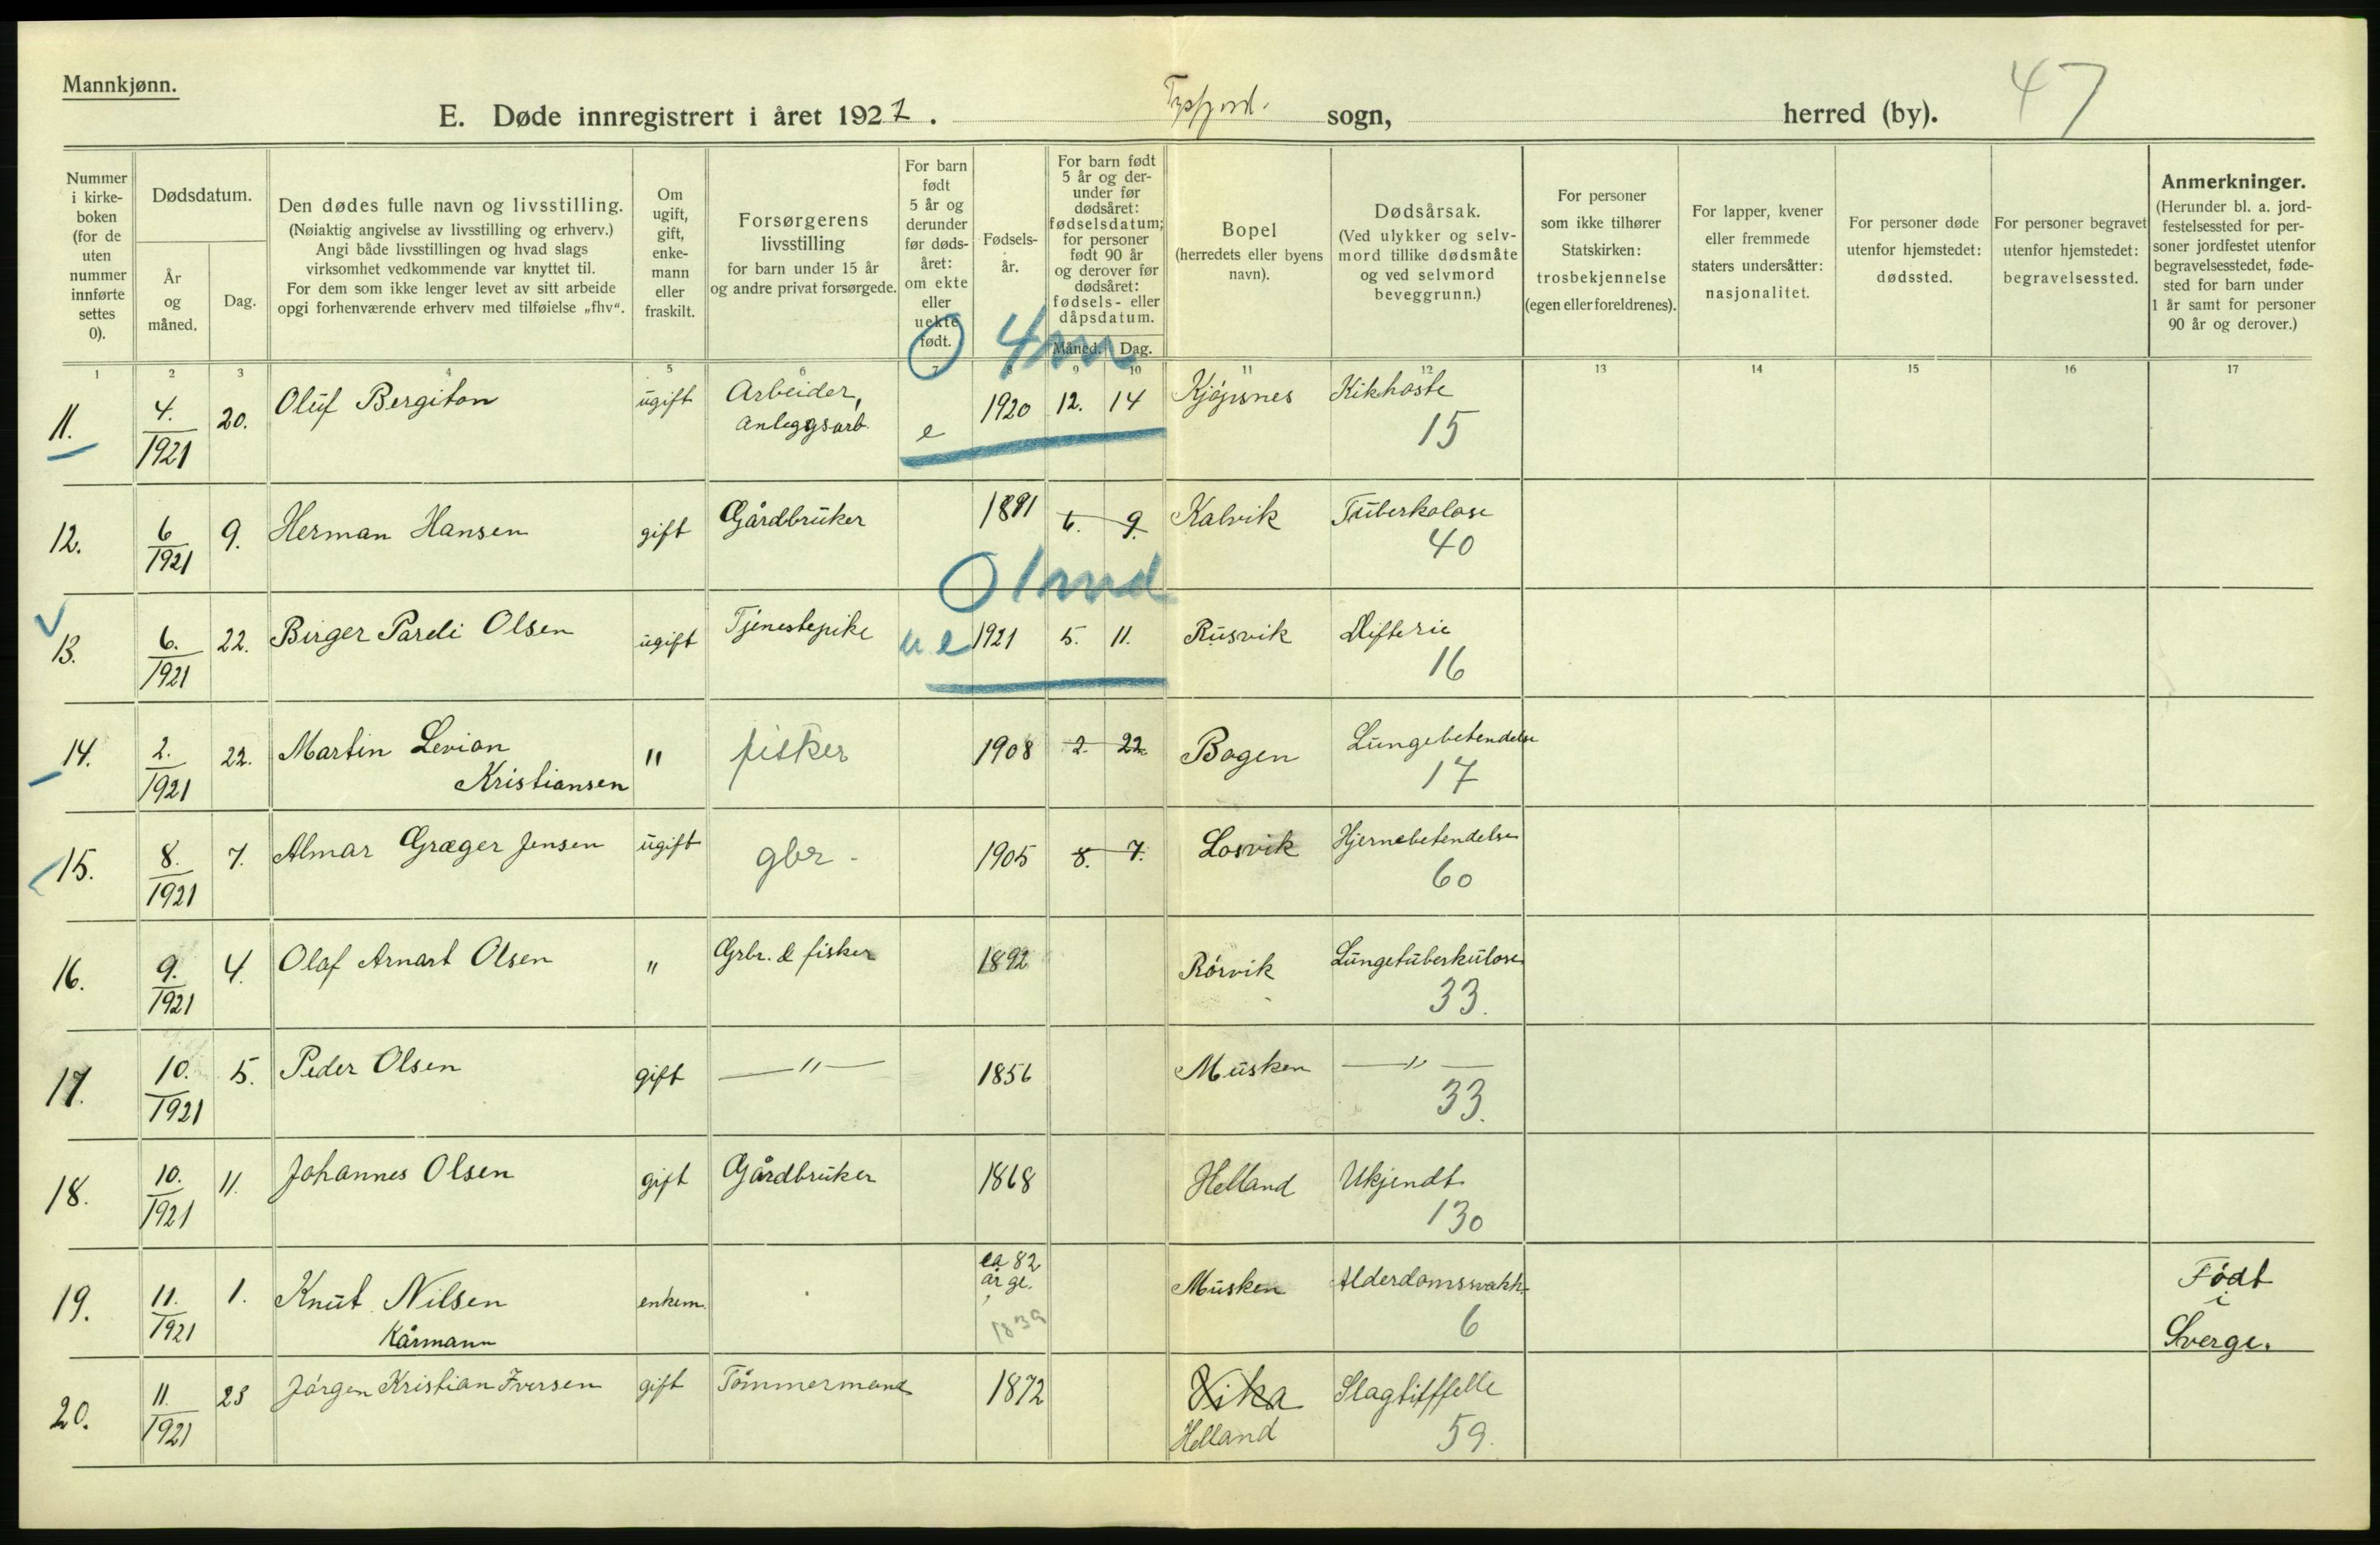 Mannkjønn.
47
E. Døde innregistrert i året 1921. Tysfjord. sogn, herred (by).
Nummer i kirkeboken (for de uten nummer innførte settes 0).
Dødsdatum.
År og måned.
Dag.
Den dødes fulle navn og livsstilling.
(Nøiaktig angivelse av livsstilling og erhverv.)
Angi både livsstillingen og hvad slags
virksomhet vedkommende var knyttet til.
For dem som ikke lenger levet av sitt arbeide
opgi forhenværende erhverv med tilføielse „fhv“.
Om ugift, gift, enkemann eller fraskilt.
Forsørgerens livsstilling
for barn under 15 år
og andre privat forsørgede.
For barn født 5 år og derunder før dødsåret: om ekte eller uekte født.
Fødselsår.
For barn født 5 år og derunder før dødsåret: fødselsdatum; for personer født 90 år og derover før dødsåret: fødsels- eller dåpsdatum.
Måned. Dag.
Bopel
(herredets eller byens navn).
Dødsårsak.
(Ved ulykker og selvmord tillike dødsmåte og ved selvmord beveggrunn.)
For personer som ikke tilhører Statskirken: trosbekjennelse (egen eller foreldrenes).
For lapper, kvener eller fremmede staters undersåtter: nasjonalitet.
For personer døde utenfor hjemstedet: dødssted.
For personer begravet utenfor hjemstedet: begravelsessted.
Anmerkninger.
(Herunder bl. a. jordfestelsessted for personer jordfestet utenfor begravelsesstedet, fødested for barn under 1 år samt for personer 90 år og derover.)
1 2 3 4 5 6 7 8 9 10 11 12 13 14 15 16 17
0 4 m
11. 4. 1921 20. Oluf Bergiton ugift Arbeider, Anleggsarb. e 1920 12. 14 Kjøpsnes Kikhoste
15
12. 6 1921 9. Herman Hansen gift Gårdbruker 1891 6. 9. Kalvik Tuberkolose
40
0 1 mnd
13. 6. 1921 22. Birger Pareli Olsen ugift Tjenestepike u.e 1921 5. 11. Rusvik Difterie
16
14. 2. 1921 22. Martin Levion Kristiansen " fisker 1908 2. 22. Bogen Lungebetendelse
17
15. 8. 1921 7. Almar Græger Jensen ugift gbr. 1905 8. 7. Losvik Hjernebetendelse
60
16. 9. 1921 4. Olaf Arnart Olsen " Grbr. & fisker 1892 Rørvik Lungetuberkulose
33.
17. 10. 1921 5. Peder Olsen gift — " — 1856 Musken — " —
33.
18. 10. 1921 11. Johannes Olsen gift Gårdbruker 1868 Helland Ukjendt
130
19. 11. 1921 1. Knut Nilsen Kårmann enkem. ca 82 år gl. 1839 Musken Alderdomssvakh. Født i Sverge.
6
20. 11. 1921 23 Jørgen Kristian Iversen gift Tømmermand 1872 Vika Helland Slagtilffelle
59.